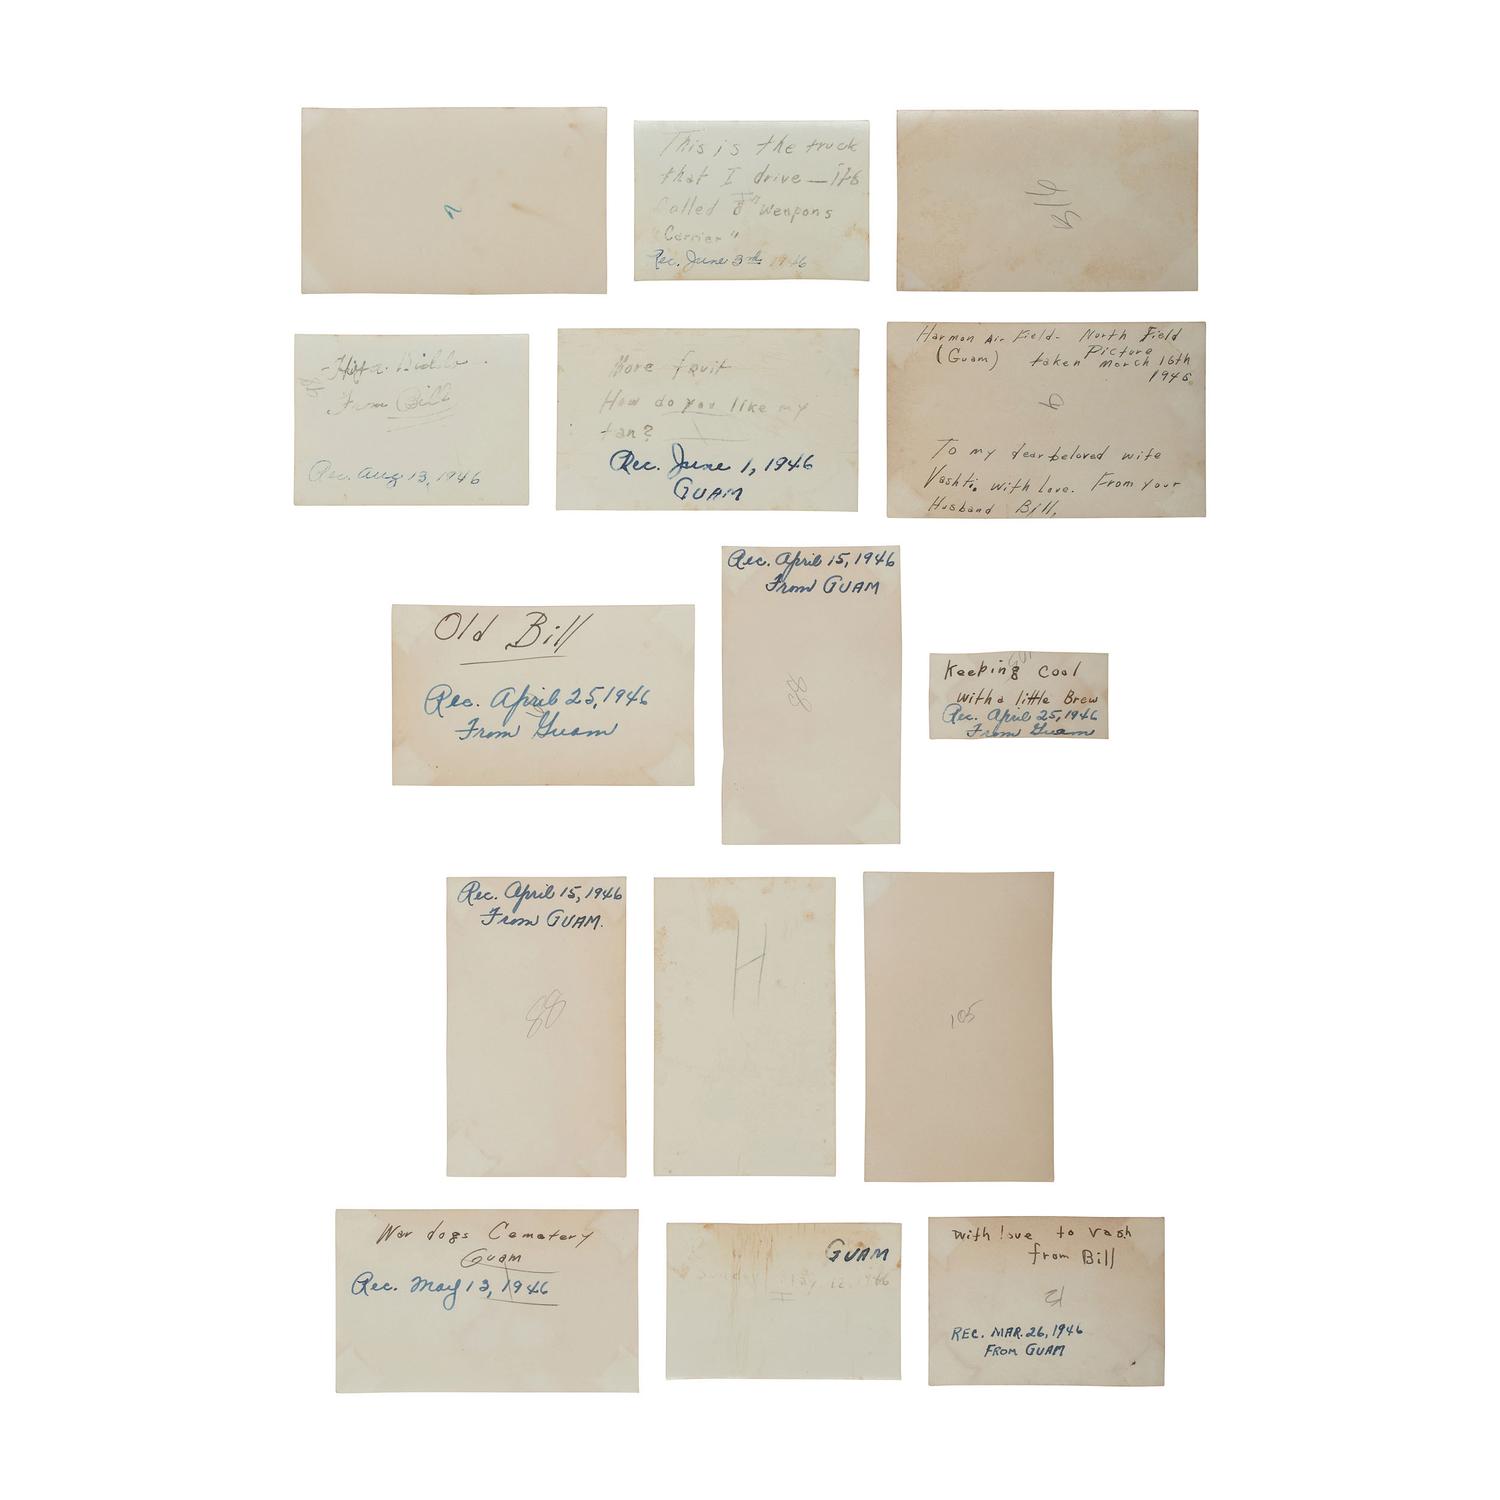 This is the truck
that I drive — its
Called a "Weapons
Carrier"
Rec. June 3rd 1946
916
From Bill
Rec. Aug 13, 1946
More fruit
How do you like my
tan?
Rec. June 1, 1946
GUAM
Harmon Air Field - North Field
(Guam) taken Picture March 16th
1946
To my dear beloved wife
Vashti. with love. From your
Husband Bill.
Old Bill
Rec. April 25, 1946
From Guam
Rec. April 15, 1946
From GUAM
88
Keeping Cool
with a little Brew
Rec. April 25, 1946
From Guam
Rec. April 15, 1946
From GUAM.
88
H
105
War dogs Cemetery
Guam
Rec. May 13, 1946
GUAM
with love to Vash
from Bill
REC. MAR. 26, 1946
FROM GUAM